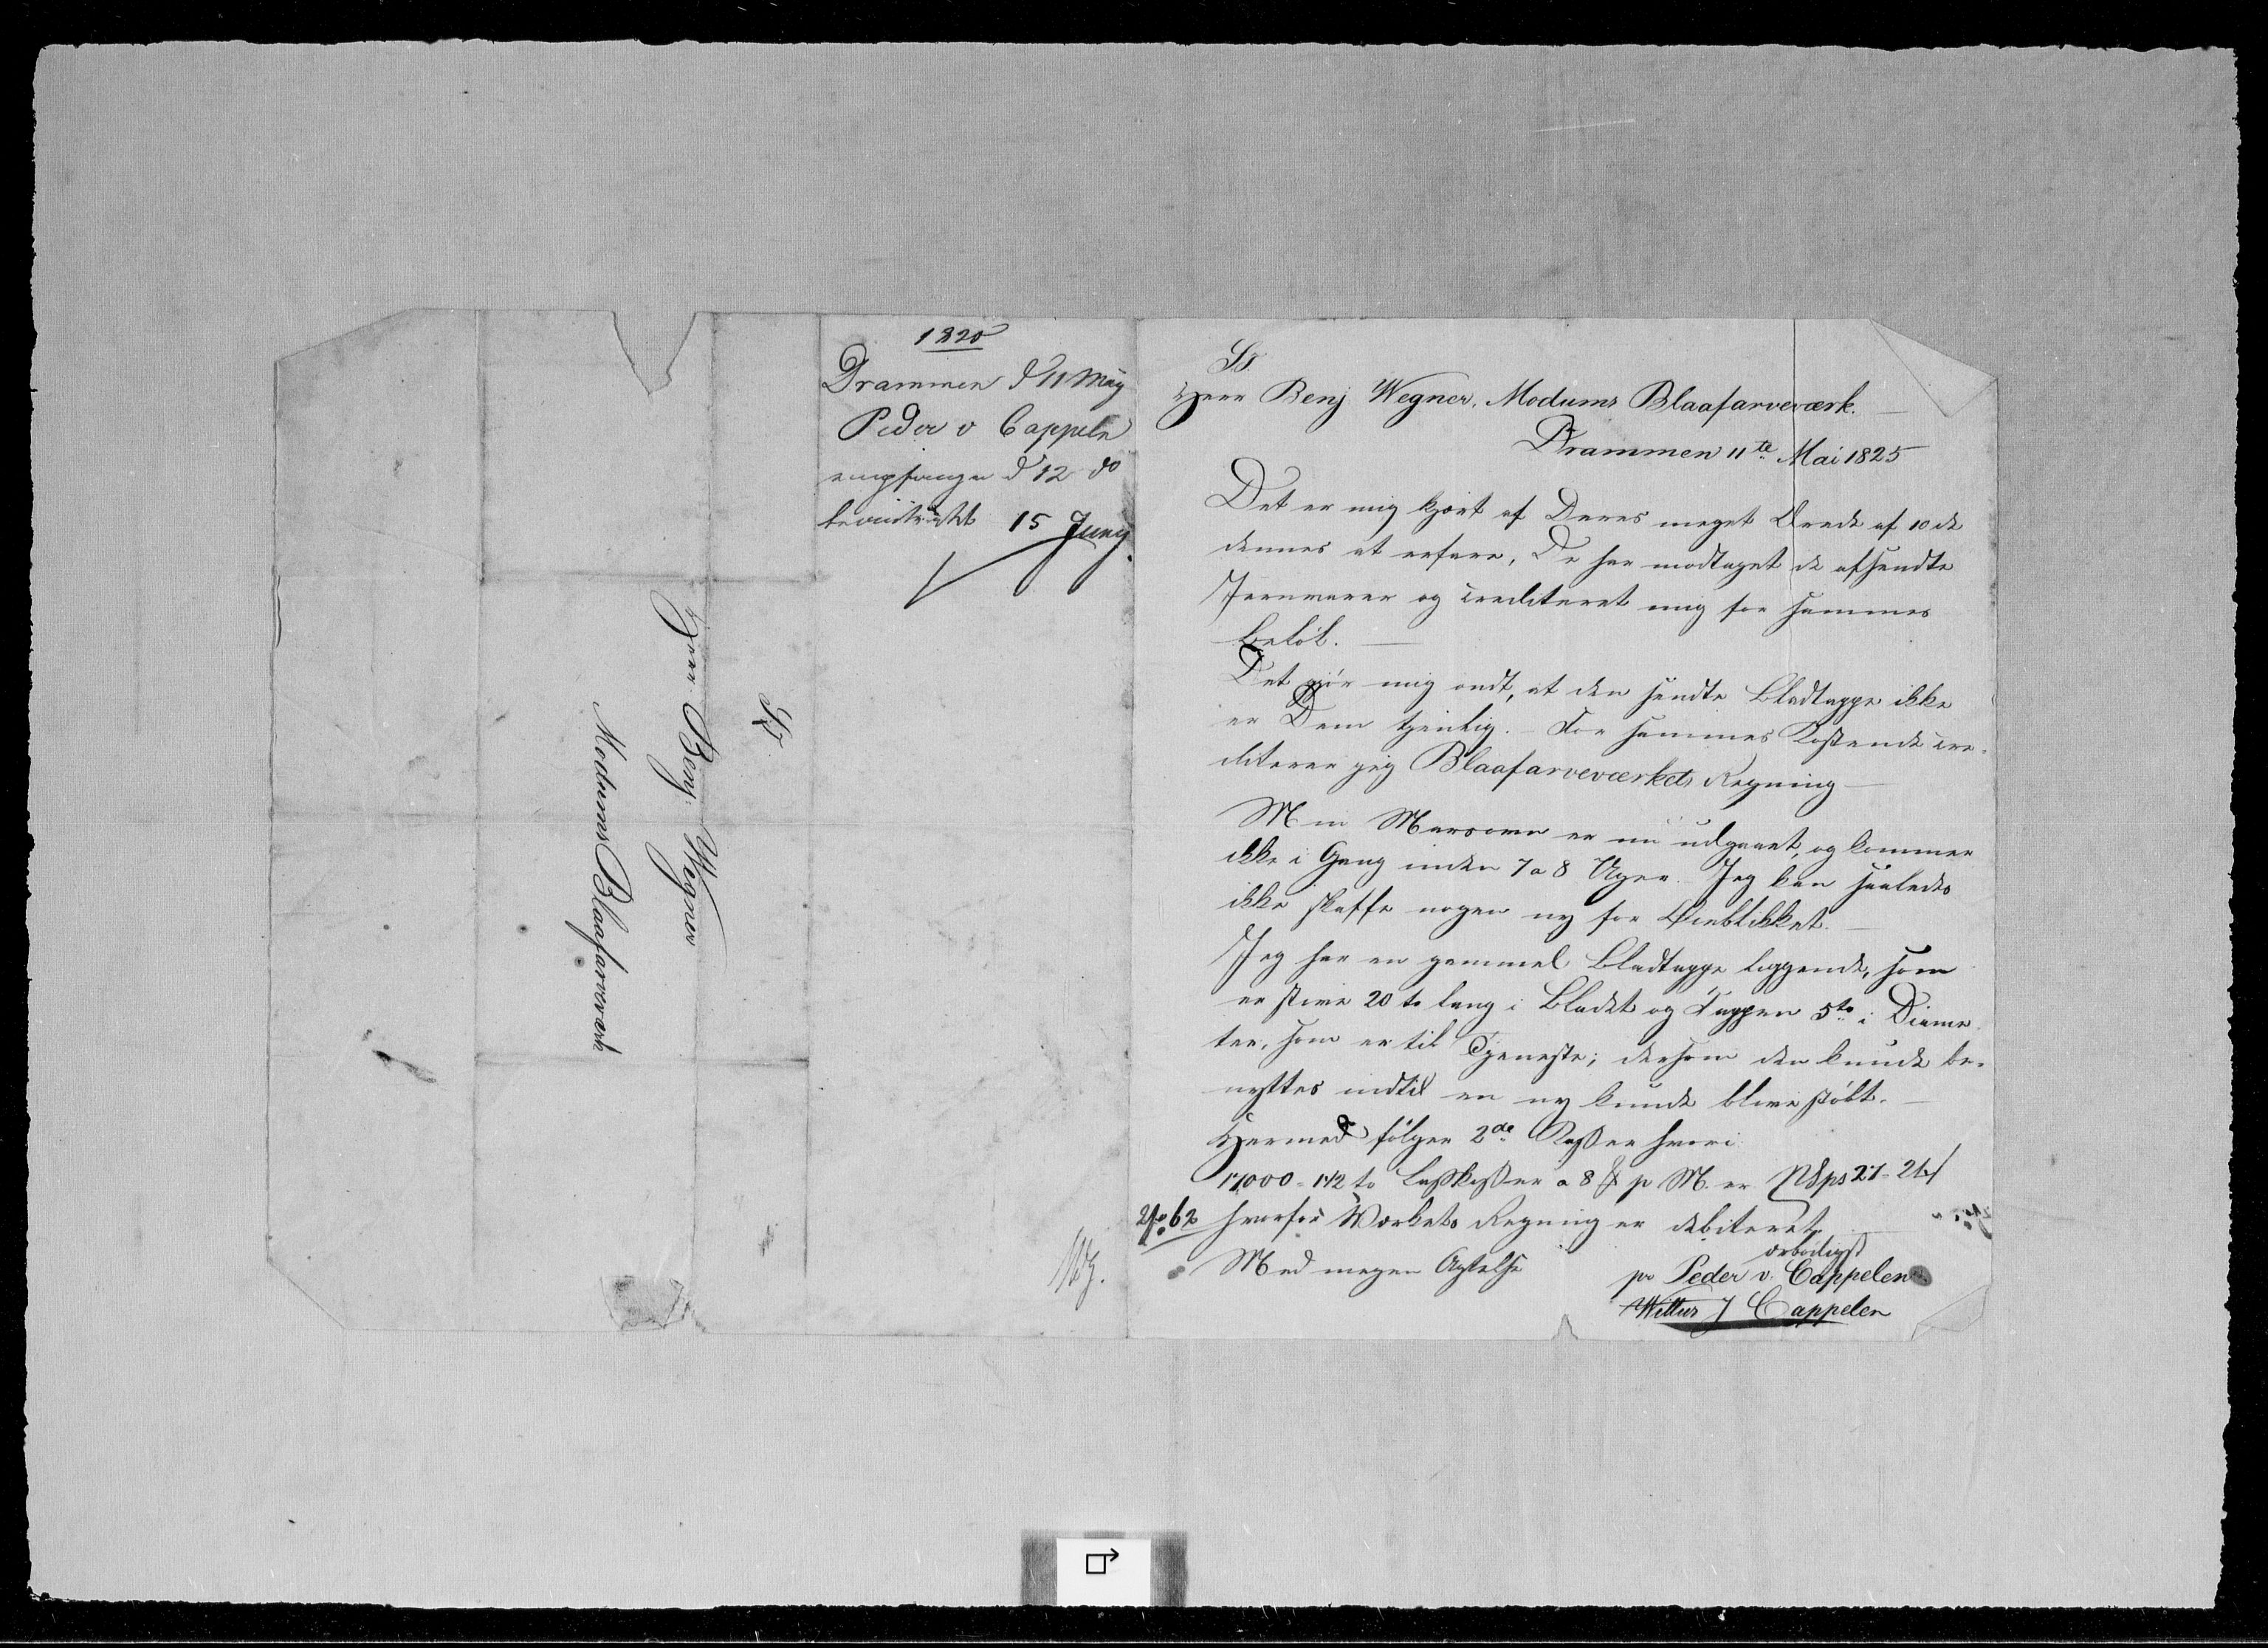 1825
Drammen d 11 May
Peder v Cappeln
empfangen d 12 do
beantwortet 15 Juny.
ST.
Herr Benj. Wegner
Modums Blaafarveværk
ST.
Herr Benj Wegner, Modums Blaafarveværk.
Drammen 11te Mai 1825
Det er mig kjært af Deres meget Ærede af 10de
dennes at erfare, De har modtaget de afsendte
Jernvarer og crediteret mig for sammes
Beløb.
Det gjør mig ondt, at den sendte Bladtappe ikke
er Dem tjenlig. For sammes Kostende cre-
diterer jeg Blaafarveværkets Regning
Min Masovn er nu udgaaet, og kommer
ikke i Gang inden 7 a 8 Uger. Jeg kan saaledes
ikke skaffe nogen ny for Øieblikket.
Jeg har en gammel Bladtappe liggende, som
er 20 to lang i Bladet og Tappen 5to i Diame
ter, som er til Tjeneste; dersom den kunde be-
nyttes indtil en ny kunde blive støbt.
Hermed følger 2de Kasser hvori
17000 - 1 1/2 to a 8 p M. er 27 - 24
62 hvorfor Værkets Regning er debiteret
Med megen Agtelse
ærbødigst
pr Peder v. Cappelen
J Cappelen